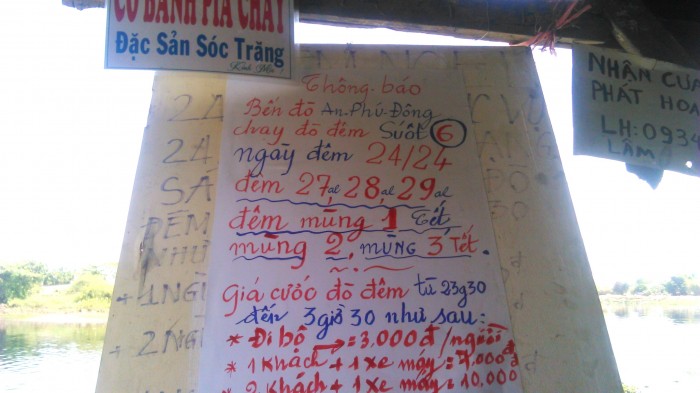 CÓ BÁNH PÍA CHAY
Đặc Sản Sóc Trăng
Kính Mời!
Thông báo
Bến đò An Phú Đông
chạy đò đêm Suốt 6
ngày đêm 24/24
đêm 27 al, 28 al, 29 al
đêm mùng 1 Tết,
mùng 2, mùng 3 Tết.
Giá cước đò đêm từ 23g30
đến 3giờ 30 như sau:
* Đi bộ → = 3.000đ/người
* 1 Khách + 1 xe máy = 7,000đ
* 2 Khách + 1 xe máy = 10,000
2A
2A
SA
ĐÊM
NHƯ
+ 1 NGƯ
+ 2 NGƯ
NHẬN CƯA
PHÁT HO
LH: 0934
LÂM